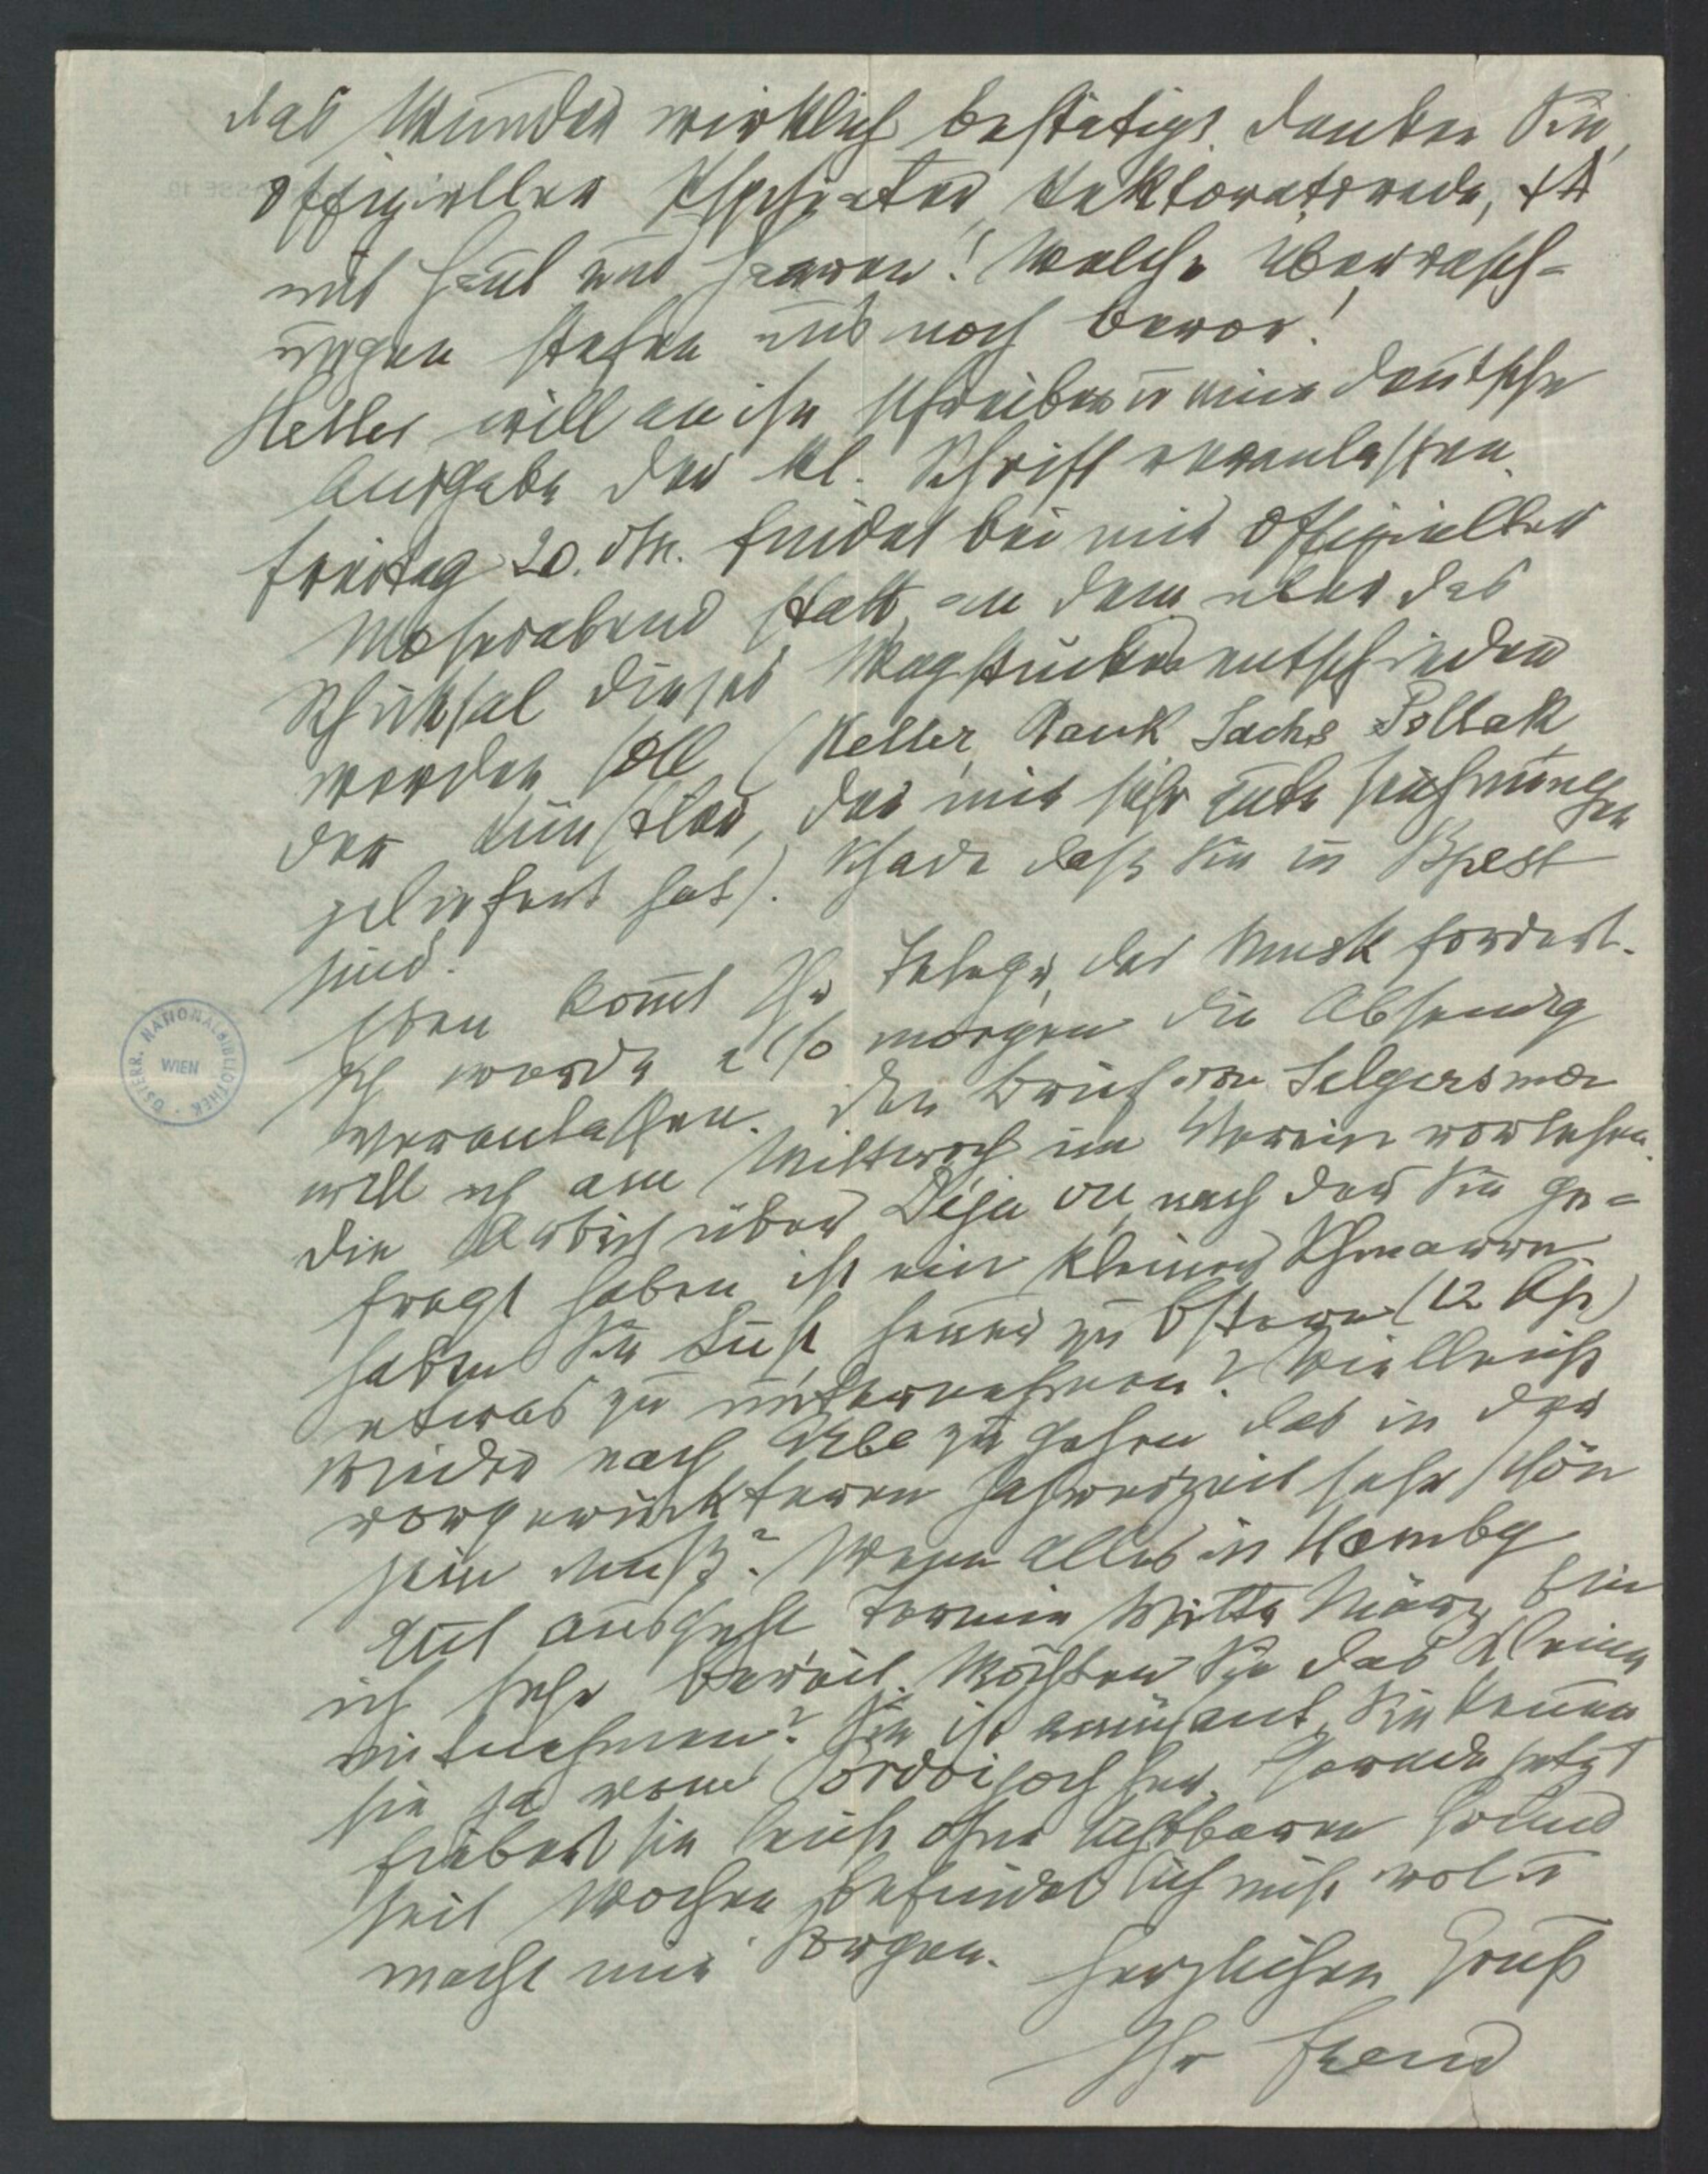 das Wunder wirklich bestätigt. Denken Sie,
offizieller Psychiater, Rektoratsrede, ΨA
mit Haut und Haaren! Welche Überrasch-
ungen stehen uns noch bevor!
Heller will an ihn schreiben u eine deutsche
Ausgabe der kl. Schrift veranlassen.
Freitag 20. dM. findet bei mir offizieller
Mosesabend statt, an dem über das
Schicksal dieses Wagstückes entschieden
werden soll (Heller, Rank Sachs Pollak
der Künstler, der mir sehr gute Zeichnungen
geliefert hat). Schade daß Sie in Bpest
sind.
Eben kommt Ihr Telegr, der Musk fordert.
Ich werde also morgen die Absendg
veranlassen. Den Brief von Jelgersma
will ich am Mittwoch im Verein vorlesen.
Die Arbeit über Déja vu, nach der Sie ge-
fragt haben ist ein kleiner Schmarrn.
Haben Sie Lust heuer zu Ostern (12 Ap)
etwas zu unternehmen? Vielleicht
wieder nach Arbe zu gehen das in der
vorgerückteren Jahreszeit sehr schön
sein muß? Wenn alles in Hambg
gut ausgeht Termin Mitte März bin
ich sehr bereit. Möchten Sie das Kleine
mitnehmen? Sie ist amüsant, Sie kennen
sie ja vom Pordoijoch her. Gerade jetzt
fiebert sie leicht ohne tastbaren Grund
seit Wochen, befindet sich nicht wol u
macht mir Sorgen.
Herzlichen Gruß
Ihr Freud
ÖSTERR. NATIONALBIBLIOTHEK
WIEN